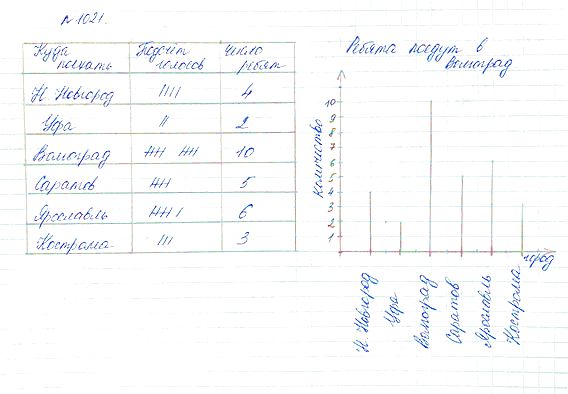 № 1021.
Куда поехать | Подсчёт голосов | Число ребят
Н. Новгород | IIII | 4
Уфа | II | 2
Волгоград | 𝍸 𝍸 | 10
Саратов | 𝍸 | 5
Ярославль | 𝍸 I | 6
Кострома | III | 3
Ребята поедут в
Волгоград
Количество
10
9
8
7
6
5
4
3
2
1
город
Н. Новгород
Уфа
Волгоград
Саратов
Ярославль
Кострома